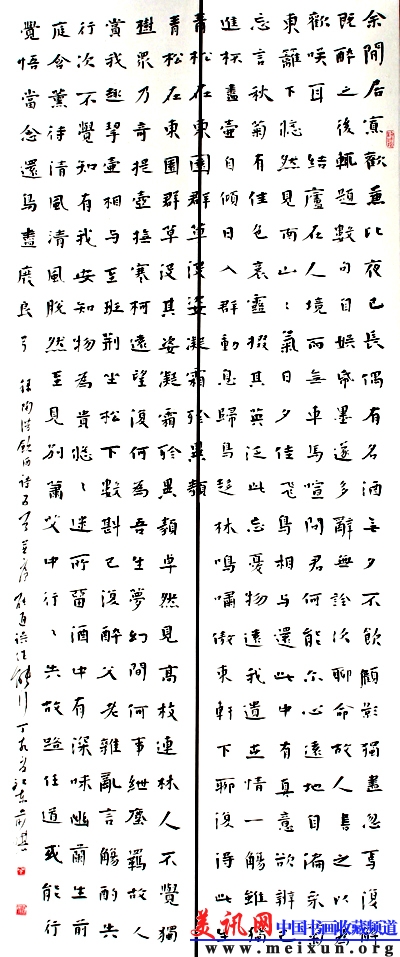 余閒居寡歡兼比夜已長偶有名酒無夕不飲顧影獨盡忽焉復醉
既醉之後輒題數句自娛紙墨遂多辭無詮次聊命故人書之以為
歡笑耳 結廬在人境而無車馬喧問君何能尔心遠地自偏采菊
東籬下悠然見南山〻氣日夕佳飛鳥相與還此中有真意欲辨已
忘言秋菊有佳色裛露掇其英泛此忘憂物遠我遺世情一觴雖獨
進杯盡壺自傾日入群動息歸鳥趨林鳴嘯傲東軒下聊復得此生
青松在東園群草沒姿凝霜殄異類
青松在東園群草沒其姿凝霜殄異類卓然見高枝連林人不覺獨
樹眾乃奇提壺撫寒柯遠望復何為吾生夢幻間何事紲塵羈故人
賞我趣挈壺相與至班荊坐松下數斟已復醉父老雜亂言觴酌失
行次不覺知有我安知物為貴悠〻迷所留酒中有深味幽蘭生前
庭含薰待清風清風脫然至見別蕭艾中行〻失故路任道或能行
覺悟當念還鳥盡廢良弓 飲酒詩 丁亥
美讯网 中国书画收藏频道
www.meixun.org